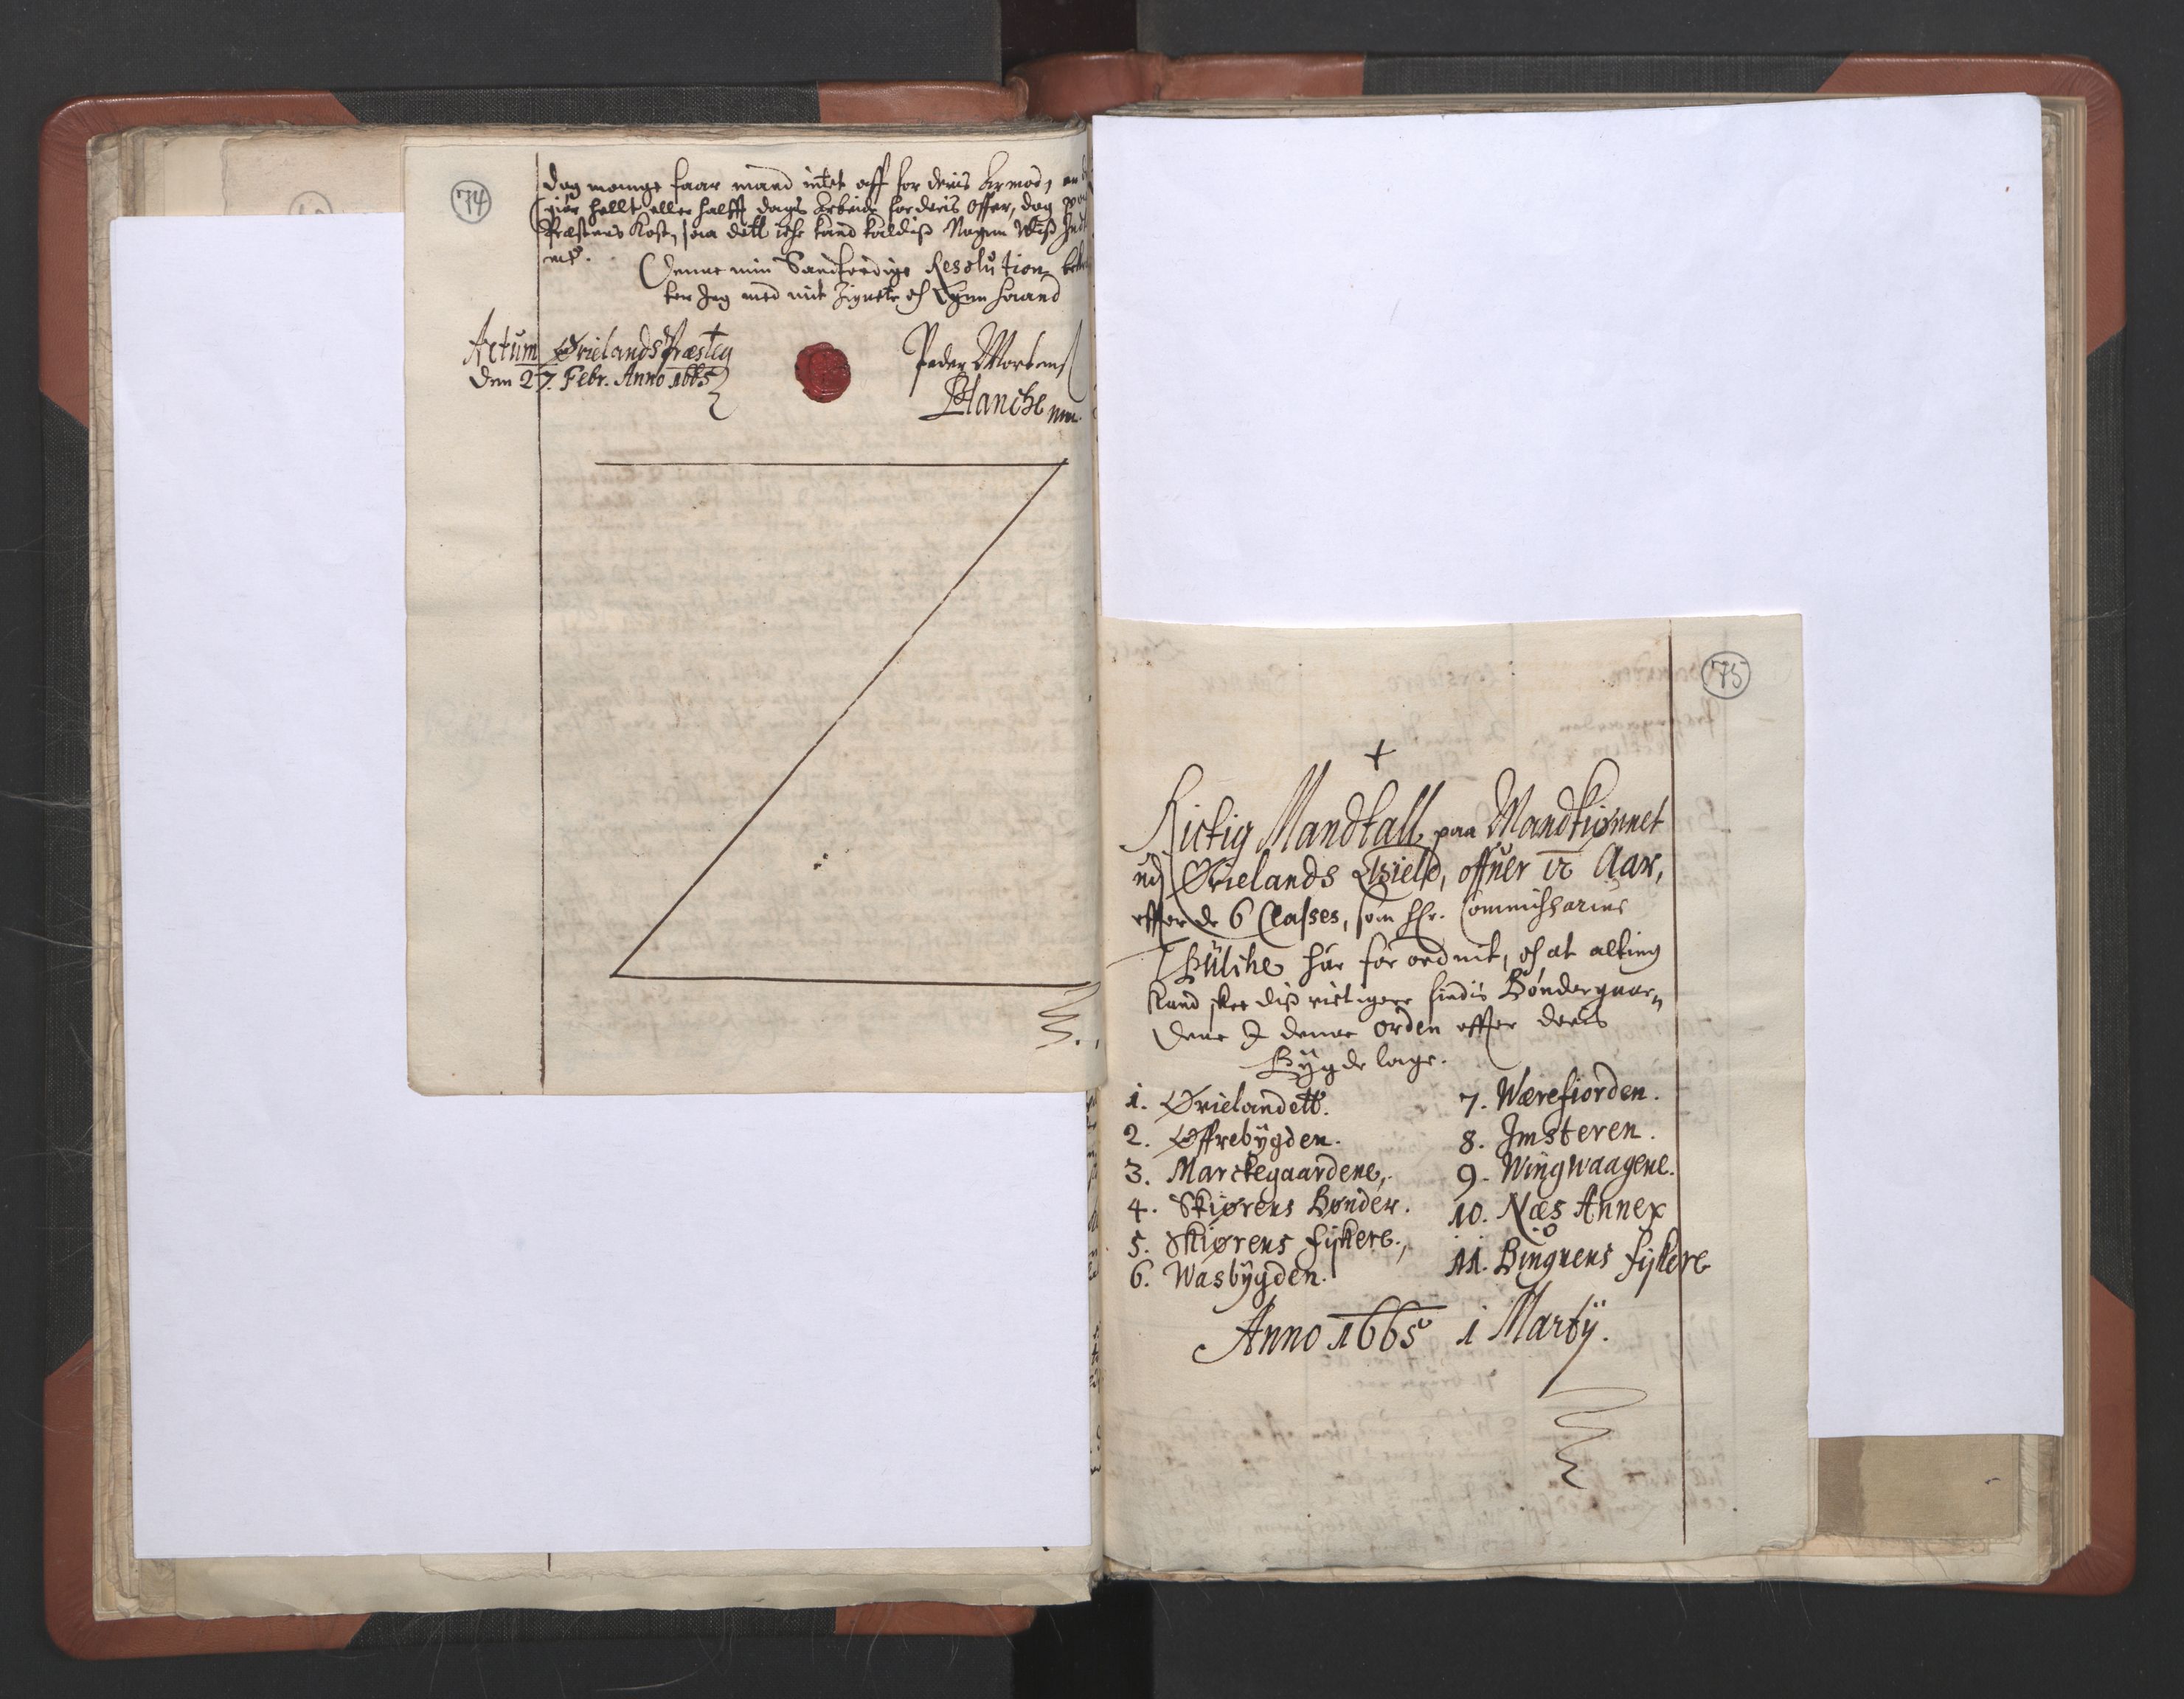 74
dog mange faar mand intet aff for deris Armod,
giør hellt eller halfft dags Arbeide for deris Offer, dog
Præstens Kost, saa dett iche kand kaldiss Nogen Wiss
me.
Denne min Sandferdige Resolution
ter Jeg med mit Zignete och Egen Haand
Actum Ørielands Præsteg
den 27. Febr. Anno 1665
Peder Mortens
Blanche mm.
75
Rictig Mandtall paa Mandkiønnet
udj Ørielands Gield, offuer 12 Aar,
effter de 6 Classes, som Hr. Commissarius
Bülche har forordnit, och at alting
Kand skee diss rictigere findis Bøndergaar,,
dene I denne Orden effter deris
Bÿgde lage.
1. Ørielandett.
2. Øffrebÿgden.
3. Marckegaardene,.
4. Skiørens Bønder.
5. Skiørens Fiskere.,
6. Wasbÿgden.
7. Wærefiorden.
8. Imsteren.
9. Wingwaagene.
10. Næs Annex
11. Bingnens Fiskere
Anno 1665 i Martÿ.